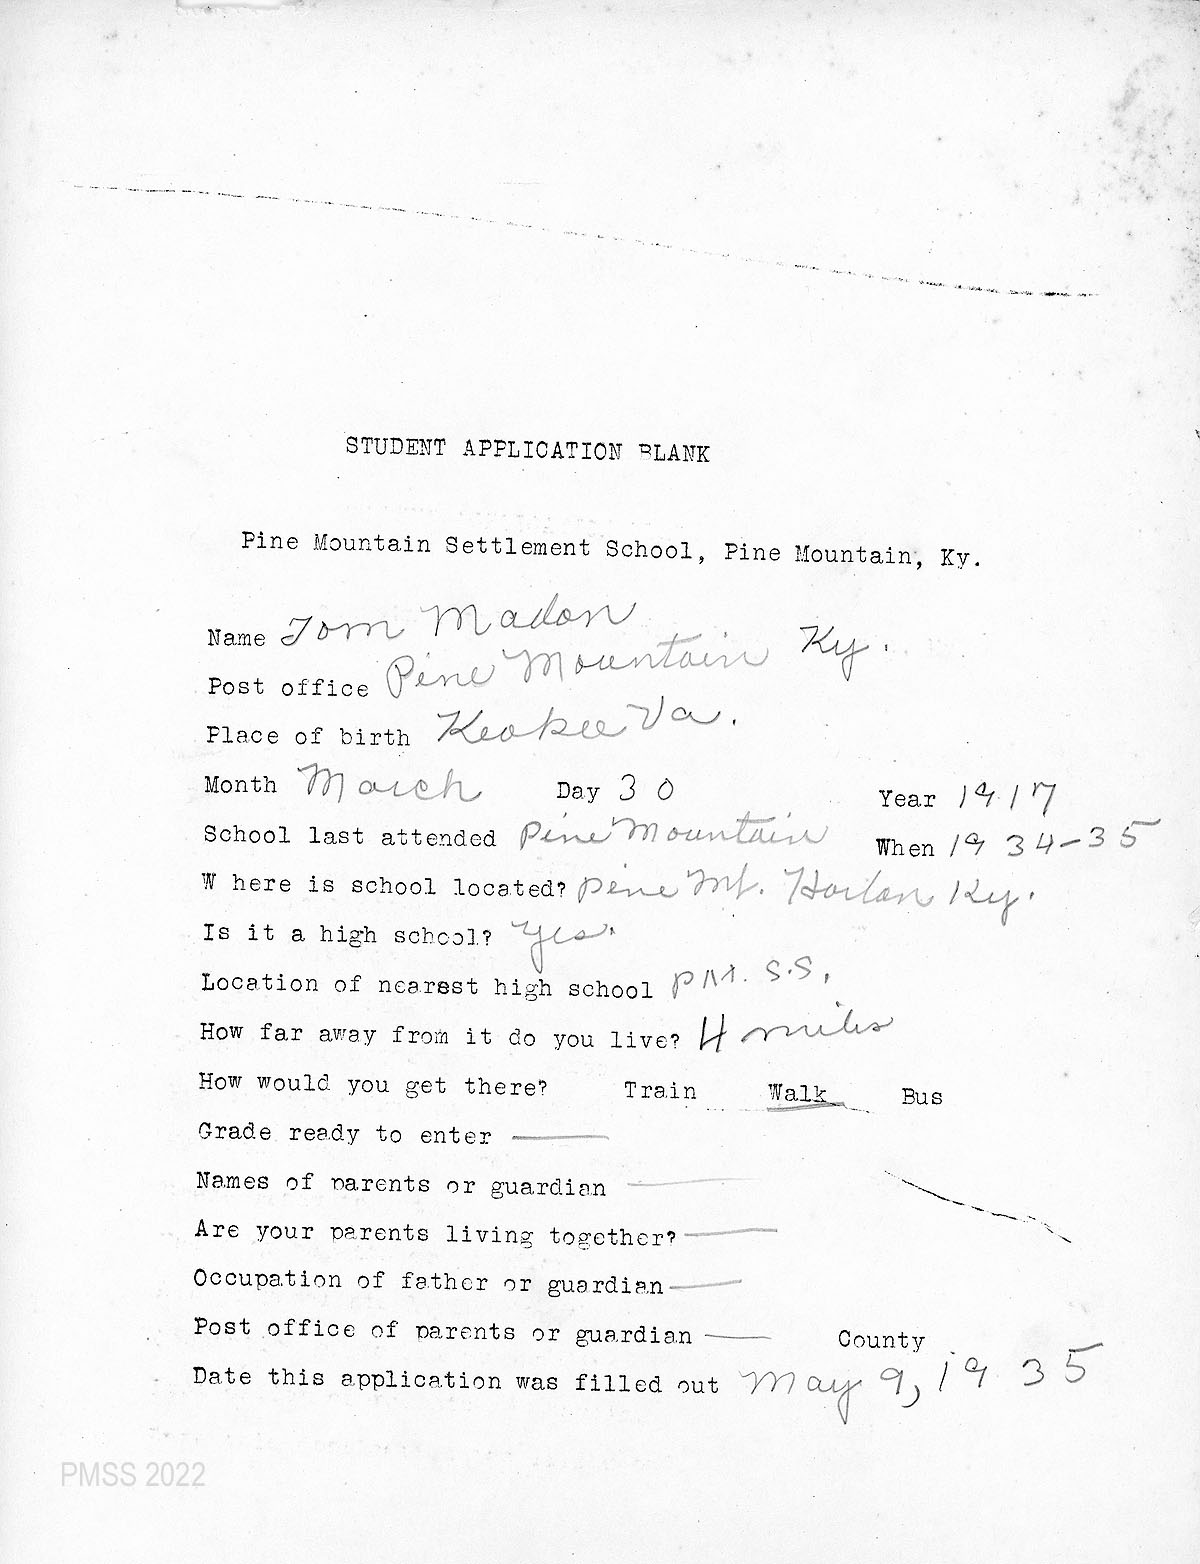 STUDENT APPLICATION BLANK
Pine Mountain Settlement School, Pine Mountain, Ky.
Name Tom Madon
Post office Pine Mountain Ky.
Place of birth Keokee Va.
Month March Day 30 Year 1917
School last attended Pine Mountain When 1934-35
W here is school located? Pine Mt. Harlan Ky.
Is it a high school? Yes.
Location of nearest high school P.M. S.S.
How far away from it do you live? 4 miles
How would you get there? Train Walk Bus
Grade ready to enter ——
Names of parents or guardian ——
Are your parents living together? ——
Occupation of father or guardian ——
Post office of parents or guardian —— County
Date this application was filled out May 9, 1935
PMSS 2022